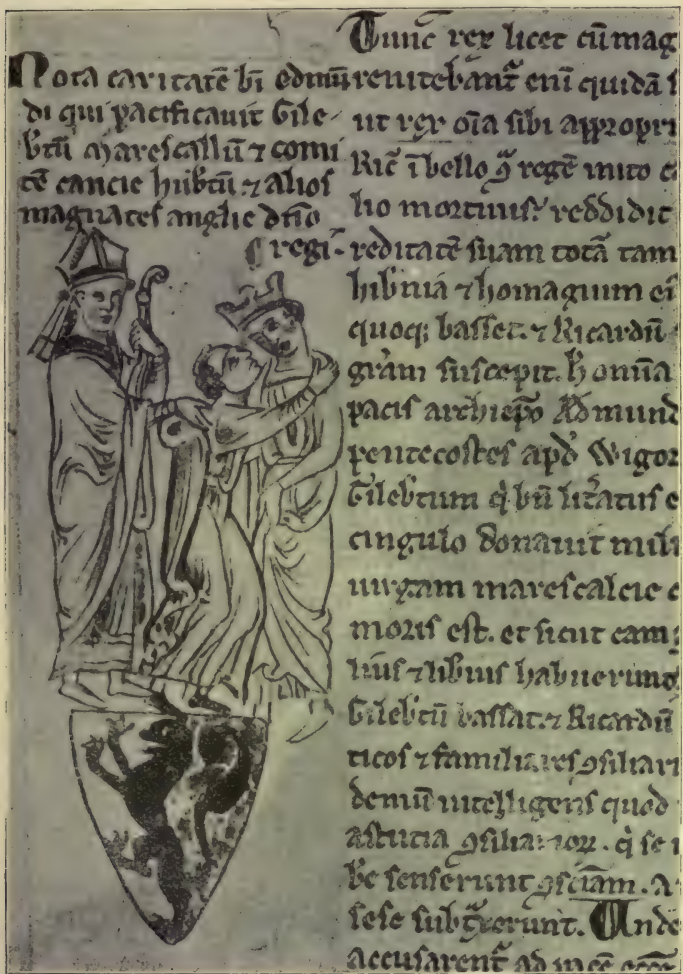 Nota caritatē bī edmū
di qui pacificauit Gile
b̄tū marescallū ⁊ comi
tē cancie hub̄tū ⁊ alios
magnates anglie dn̄o
regi.
Tunc rex licet cū mag
renitebant̄ eni quidā
ut rex oīa sibi appropri
Ric̄ ī bello regē inito
lio mortuus reddidit
reditatē suam totā tam
hib̄nia ⁊ homagium ei
quoq; basset. ⁊ Ricardū
gr̄am suscepit. h̄ omīa
pacis archiep̄o Edmund
pentecostes apd̄ Wigor
Gileb̄tum q̄ bn̄ litatus e
cingulo donauit mili
uirgam marescalcie c
moris est. et sicut cam
lius ⁊ libius habuerunt
Gileb̄tū bassat. ⁊ Ricardū
ticos ⁊ familiares ꝯsiliari
demū intelligens quod
astutia ꝯsiliarior̄. q̄ se
be senserunt ꝯsciam. a
sese subt̄xerunt. Unde
accusarent̄ ad